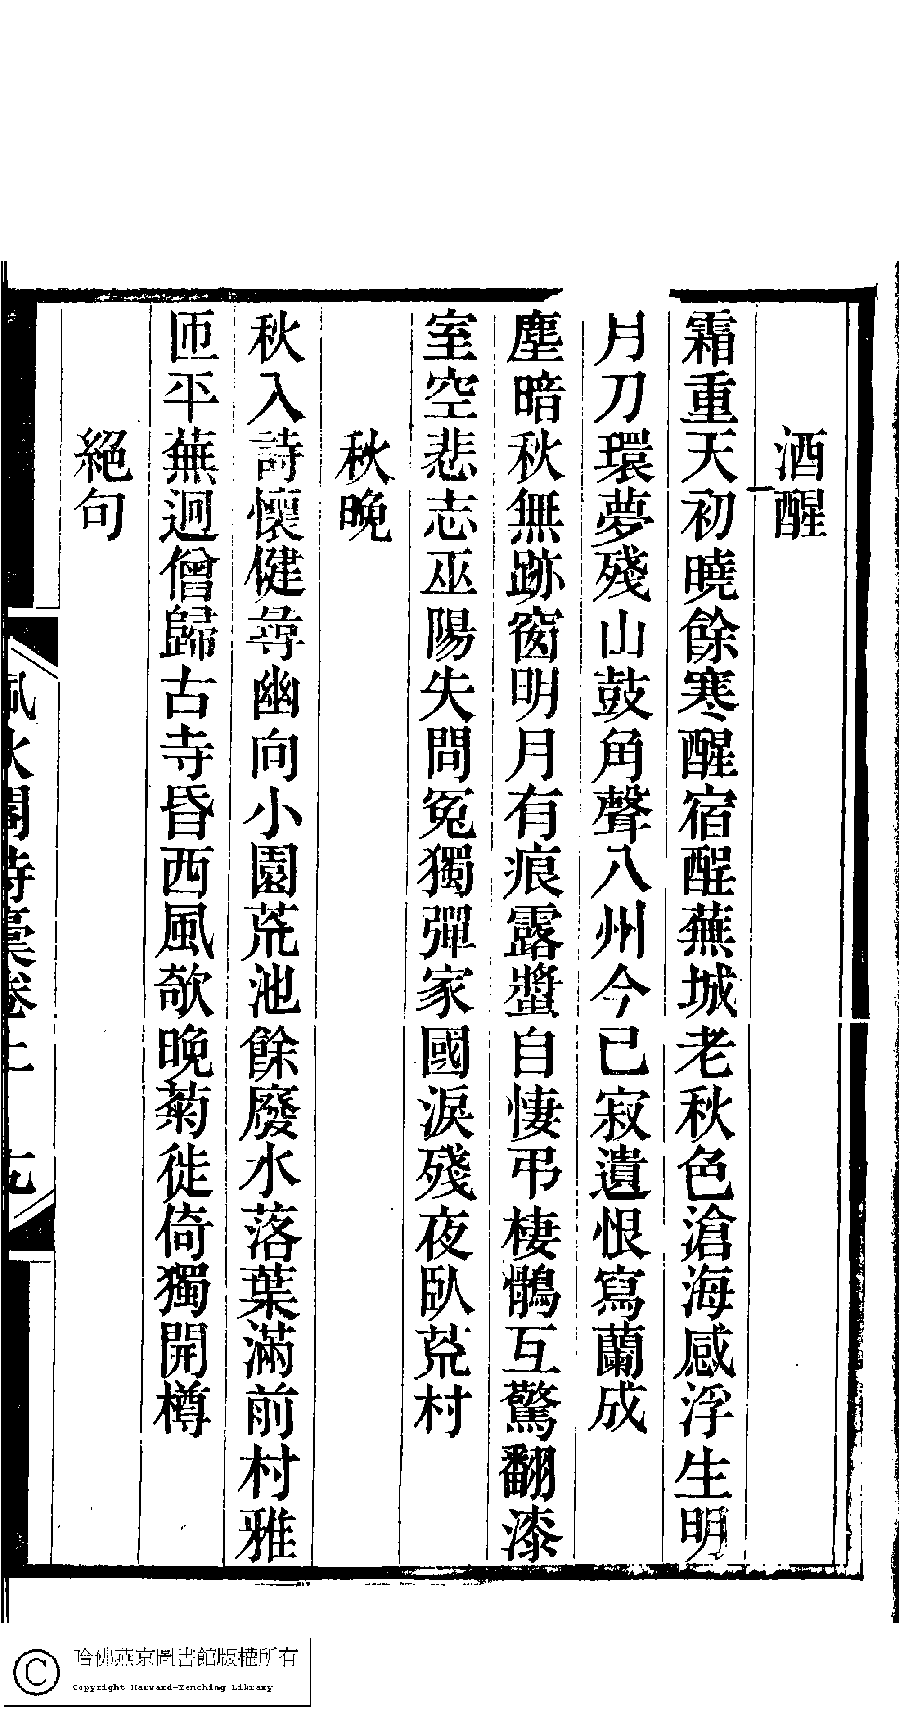 酒醒
霜重天初曉餘寒醒宿酲蕪城老秋色滄海感浮生明
月刀環夢殘山鼓角聲八州今已寂遺恨寫蘭成
塵暗秋無跡窗明月有痕露螿自悽弔棲鶻互驚翻漆
室空悲志巫陽失問冤獨彈家國淚殘夜臥荒村
秋晚
秋入詩懷健尋幽向小園荒池餘廢水落葉滿前村雅
匝平蕪迥僧歸古寺昏西風欹晚菊徙倚獨開樽
絕句
水閣詩稾卷上
九
哈佛燕京圖書館版權所有
Copyright Harvard-Yenching Library